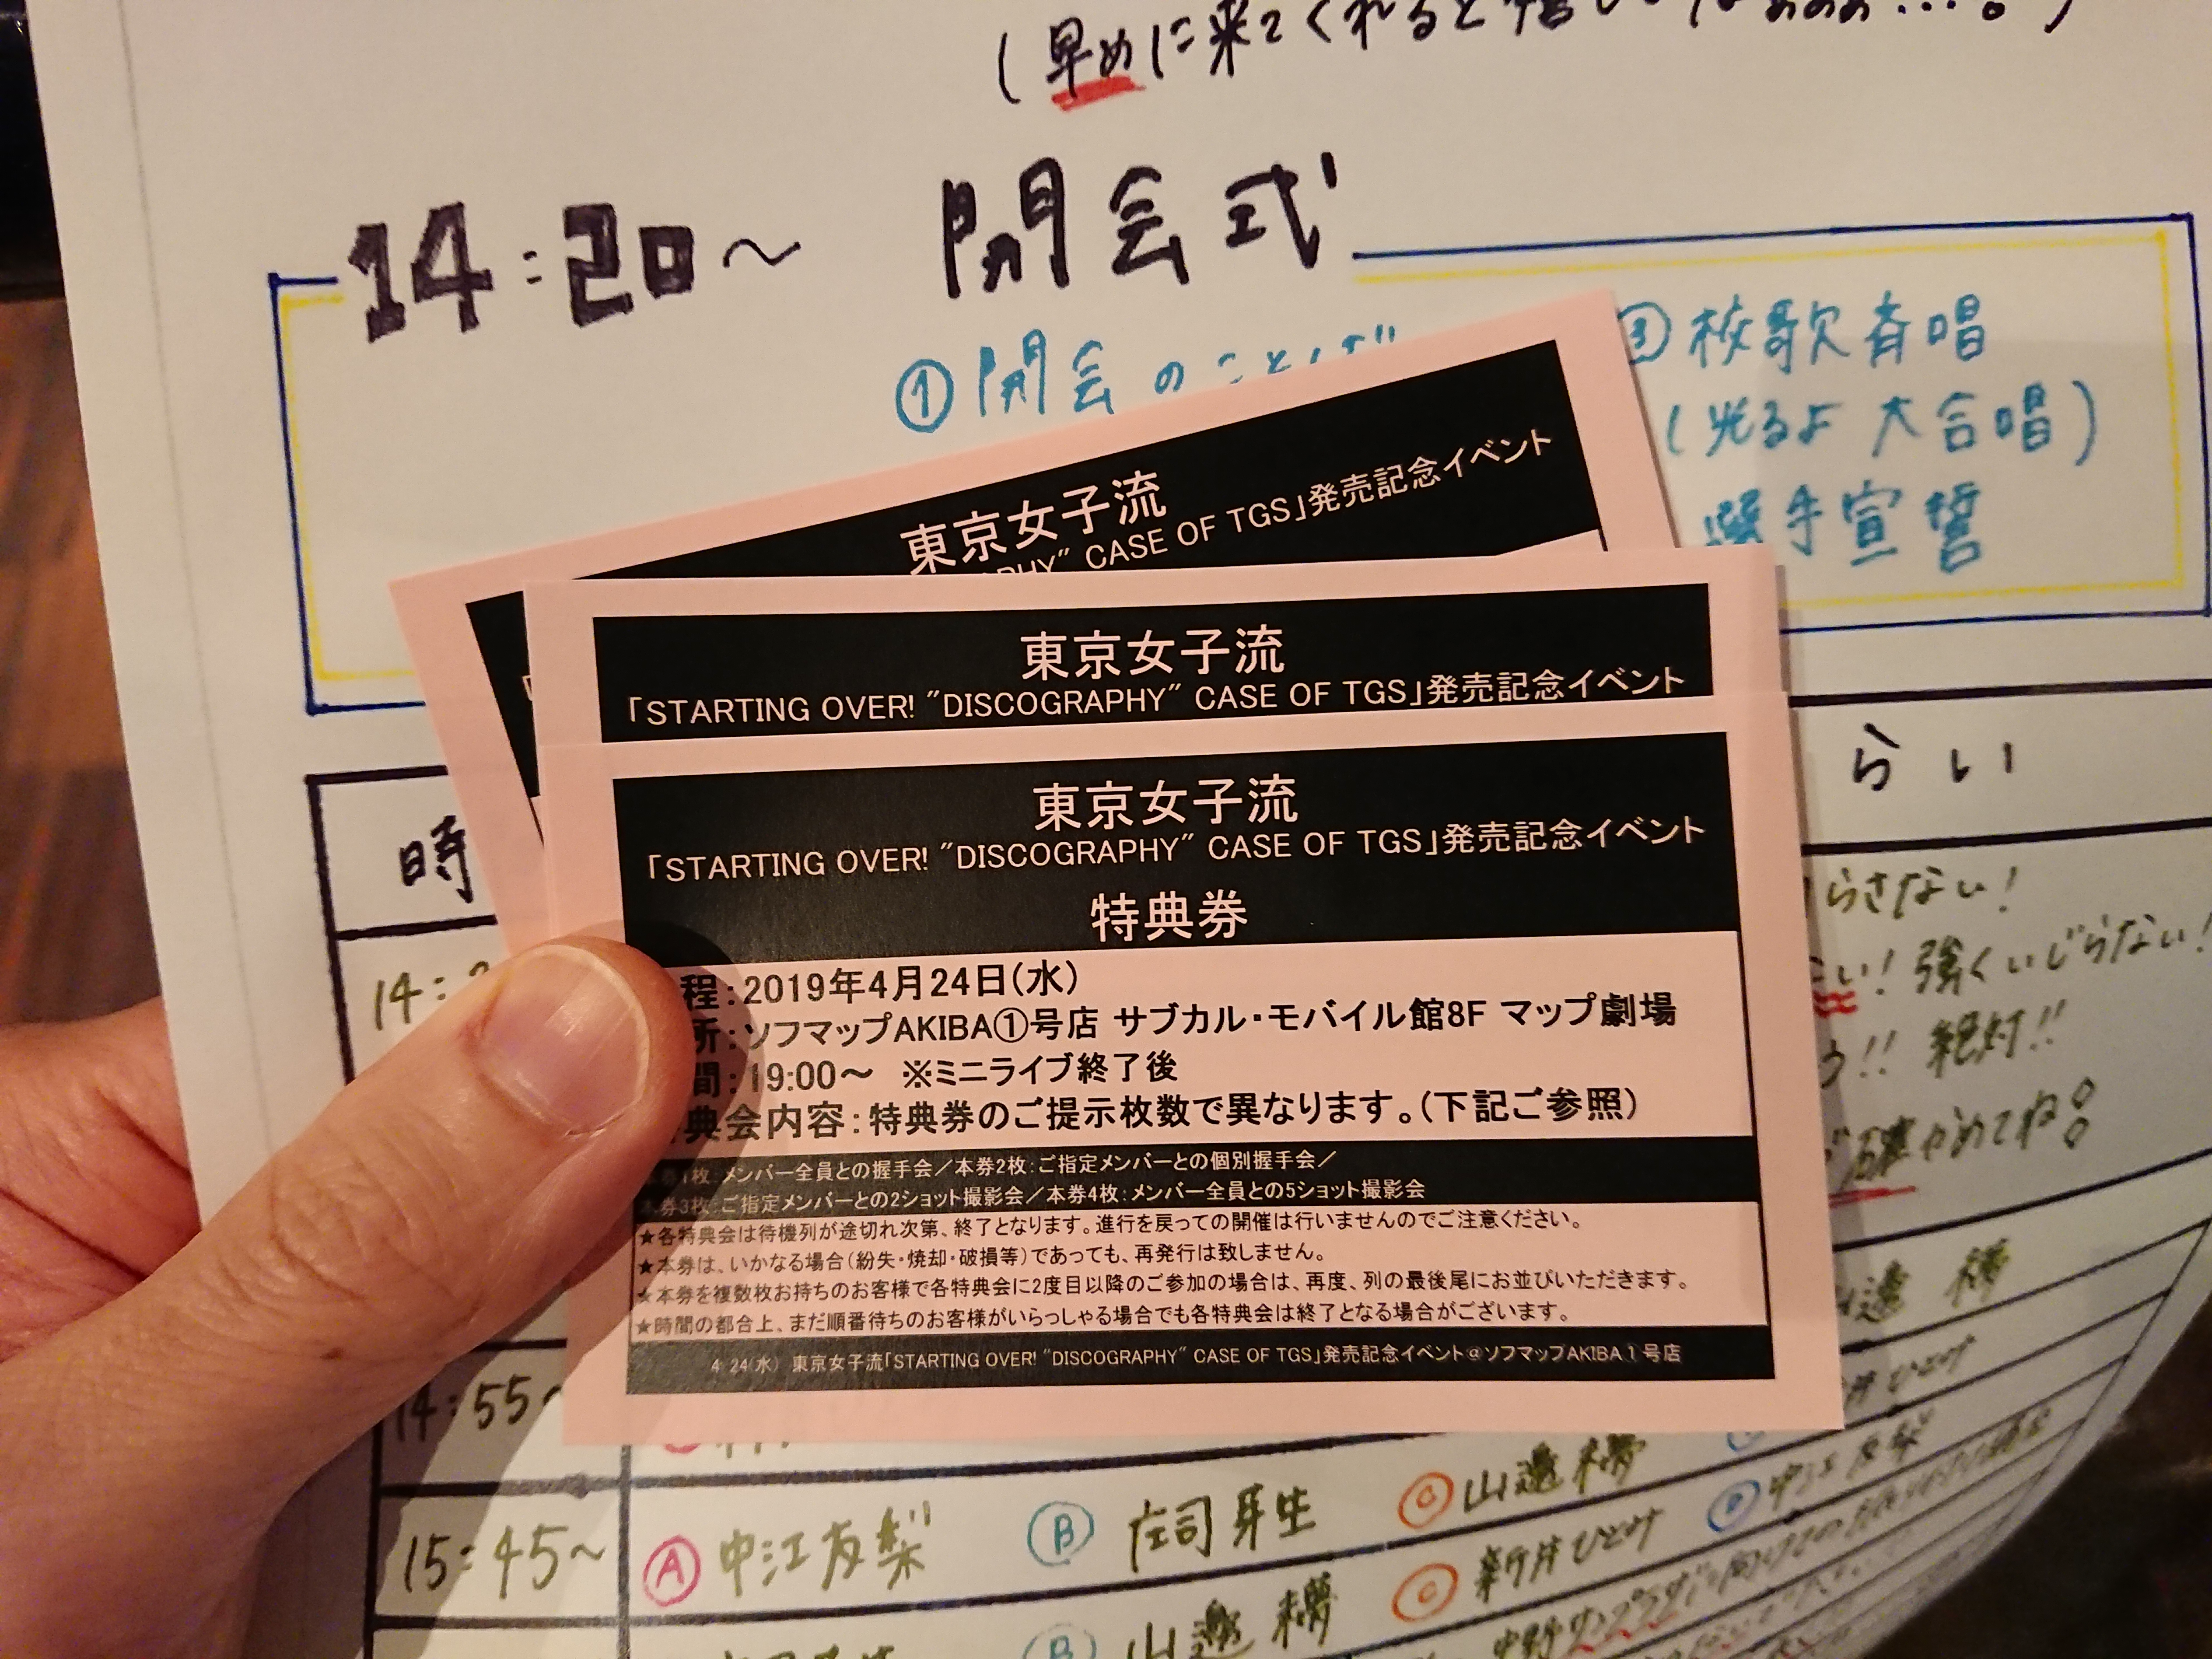 (早めに来てくれると嬉しいなぁぁぁ...。)
14:20～ 開会式
①開会のことば
③校歌斉唱
(光るよ 大合唱)
選手宣誓
東京女子流
CASE OF TGS」発売記念イベント
東京女子流
「STARTING OVER! "DISCOGRAPHY" CASE OF TGS」発売記念イベント
東京女子流
「STARTING OVER! "DISCOGRAPHY" CASE OF TGS」発売記念イベント
特典券
程:2019年4月24日(水)
所:ソフマップAKIBA①号店 サブカル・モバイル館8F マップ劇場
間:19:00～ ※ミニライブ終了後
典会内容:特典券のご提示枚数で異なります。(下記ご参照)
券1枚:メンバー全員との握手会／本券2枚:ご指定メンバーとの個別握手会／
券3枚:ご指定メンバーとの2ショット撮影会／本券4枚:メンバー全員との5ショット撮影会
★各特典会は待機列が途切れ次第、終了となります。進行を戻っての開催は行いませんのでご注意ください。
★本券は、いかなる場合(紛失・焼却・破損等)であっても、再発行は致しません。
★本券を複数枚お持ちのお客様で各特典会に2度目以降のご参加の場合は、再度、列の最後尾にお並びいただきます。
★時間の都合上、まだ順番待ちのお客様がいらっしゃる場合でも各特典会は終了となる場合がございます。
4 24(水) 東京女子流「STARTING OVER! "DISCOGRAPHY" CASE OF TGS」発売記念イベント@ソフマップAKIBA①号店
時
らい
らさない!
い! 強くいじらない!
!! 絶対!!
やめてね
山邊 穂
ひとみ
14:55～
山邊穂
中江友梨
15:45～ Ⓐ中江友梨 Ⓑ庄司芽生 Ⓒ新井ひとみ
Ⓑ山邊 穂
中野サンプラザ